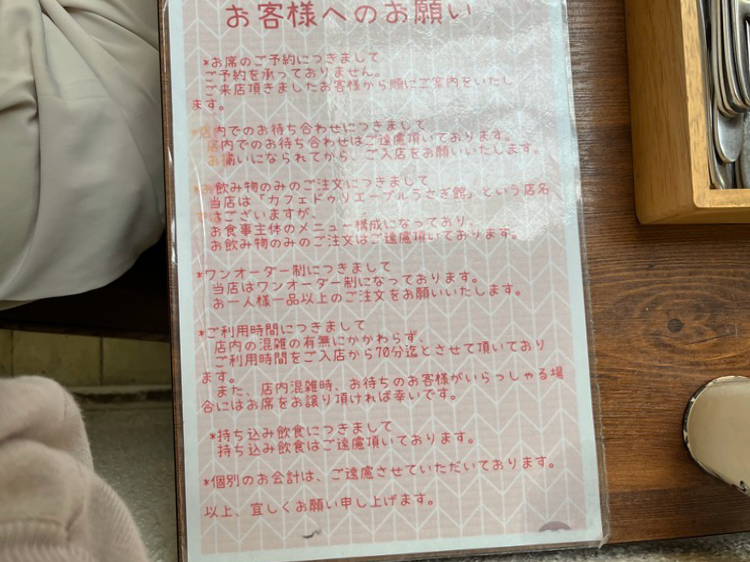 お客様へのお願い
*お席のご予約につきまして
ご予約を承っておりません。
ご来店頂きましたお客様から順にご案内をいたし
ます。
*店内でのお待ち合わせにつきまして
店内でのお待ち合わせはご遠慮頂いております。
お揃いになられてから、ご入店をお願いいたします。
*お飲み物のみのご注文につきまして
当店は「カフェドゥリエーブルうさぎ館」という店名
ではございますが、
お食事主体のメニュー構成になっており、
お飲み物のみのご注文はご遠慮頂いております。
*ワンオーダー制につきまして
当店はワンオーダー制になっております。
お一人様一品以上のご注文をお願いいたします。
*ご利用時間につきまして
店内の混雑の有無にかかわらず、
ご利用時間をご入店から70分迄とさせて頂いており
ます。
また、店内混雑時、お待ちのお客様がいらっしゃる場
合にはお席をお譲り頂ければ幸いです。
*持ち込み飲食につきまして
持ち込み飲食はご遠慮頂いております。
*個別のお会計は、ご遠慮させていただいております。
以上、宜しくお願い申し上げます。